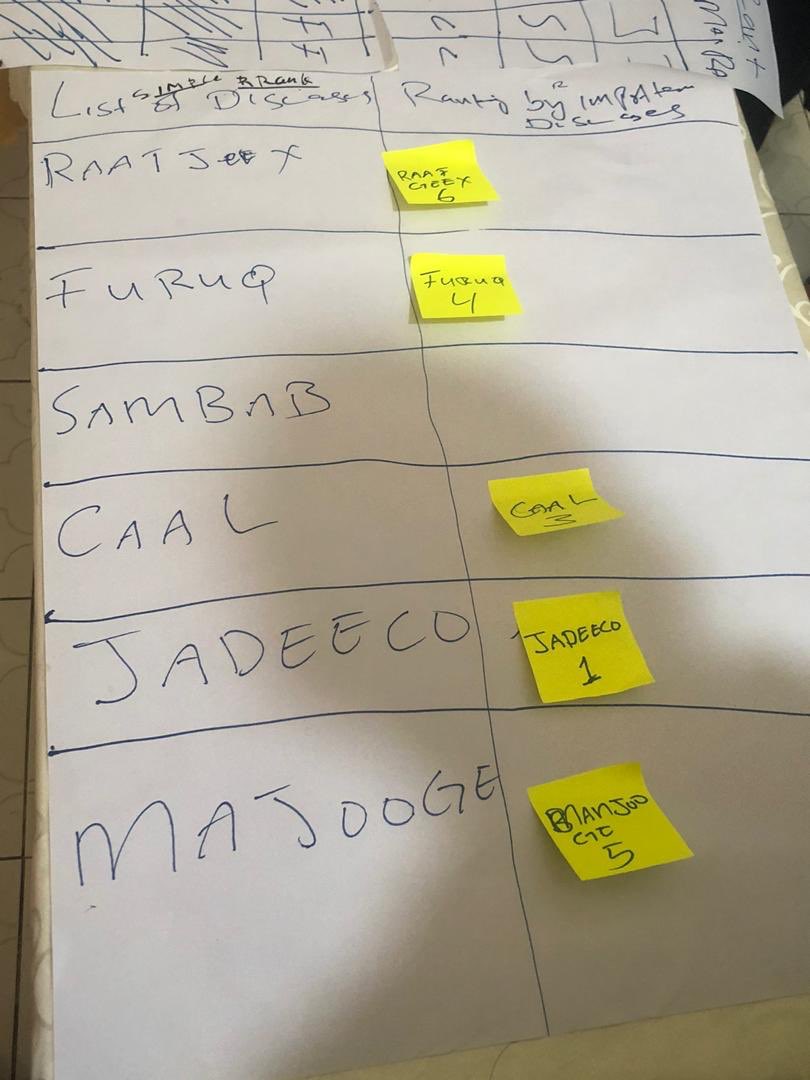 List Simple & Rank
of Diseases
Ranking by importan
Diseases
RAATJEEX
RAAT
GEEX
6
FURUQ
FURUQ
4
SAMBAB
CAAL
CAAL
3
JADEECO
JADEECO
1
MAJOOGE
MANJOO
GE
5